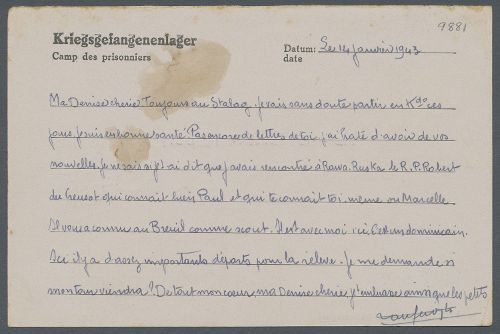 9881
Kriegsgefangenenlager
Camp des prisonniers
Datum: Le 14 janvier 1943
date
Ma Denise cherie Toujours au Stalag. Je vais sans doute partir en Kdo ces
jours. Je suis en bonne santé. Pas encore de lettres de toi. J'ai hâte d'avoir de vos
nouvelles. Je ne sais si je t'ai dit que j'avais rencontré à Rawa-Ruska le R.P. Robert
du Creusot qui connait bien Paul et qui te connait toi-même ou Marcelle
Il vous a connu au Breuil comme scout. Il est avec moi ici. C'est un dominicain.
Ici il y a d'assez importants départs pour la relève. Je me demande si
mon tour viendra? De tout mon coeur, ma Denise cherie, j't'embrasse ainsi que les petits